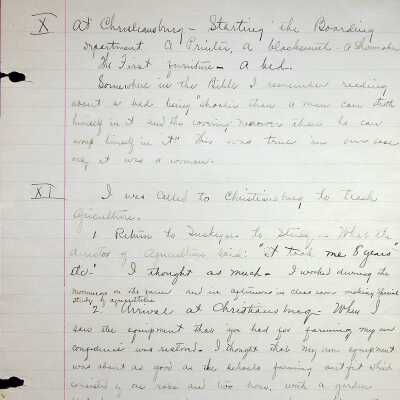 X At Christiansburg - Starting the Boarding
Department A Printer, a blacksmith - a Shoemaker
The First furniture - A bed.
Somewhere in the Bible I remember reading
about a bed being "shorter than a man can stretch
himself in it and the covering narrower than he can
wrap himself in it" This was true in our case
only it was a woman.
XI I was called to Christiansburg to teach
Agriculture.
1. Return to Tuskegee to Study - What the
director of Agriculture said: "it took me 8 years
to do" I thought as much - I worked during the
mornings on the farm and in afternoons in class room making special
study of agriculture
2. Arrival at Christiansburg - When I
saw the equipment that you had for farming my own
confidence was restored - I thought that my own equipment
was about as good as the schools farming outfit which
consisted of one rake and two hoes, with a garden